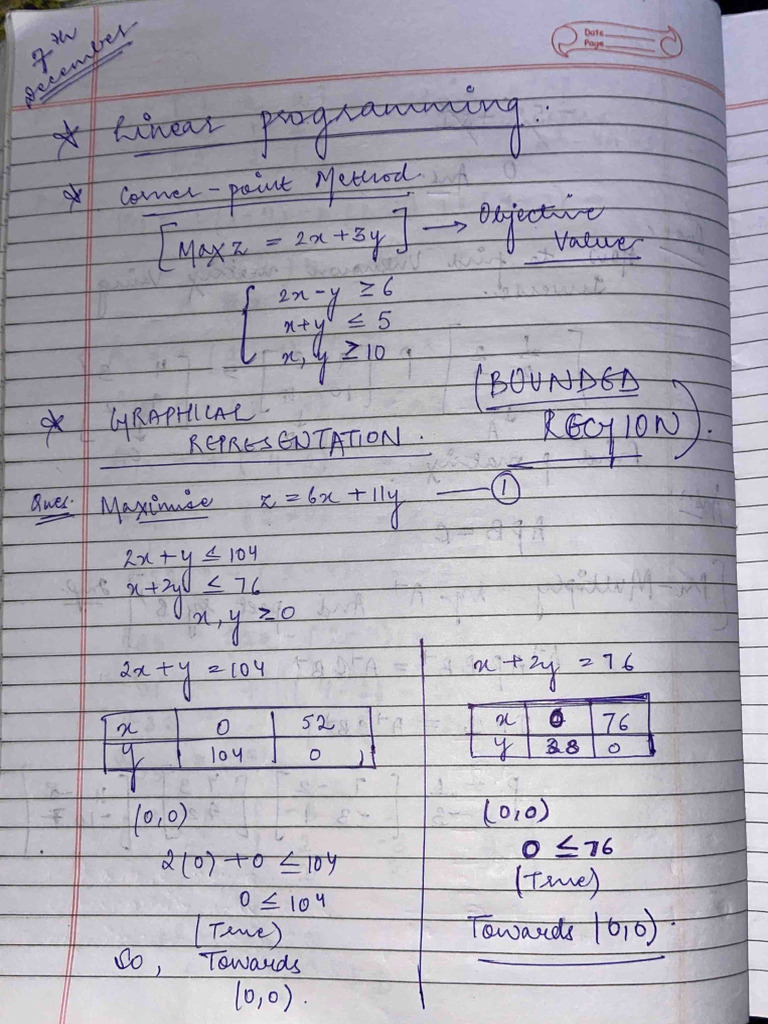 7th December
Date
Page
* Linear programming:
* Corner-point Method.
[Max z = 2x+3y] → Objective Value
{ 2x-y ≥ 6
x+y ≤ 5
x, y ≥ 10
* GRAPHICAL REPRESENTATION. (BOUNDED REGION).
Ques. Maximise z = 6x + 11y — ①
2x + y ≤ 104
x+2y ≤ 76
x, y ≥ 0
2x + y = 104
x | 0 | 52
y | 104 | 0
(0,0)
2(0) + 0 ≤ 104
0 ≤ 104
(True)
So, Towards
(0,0).
x + 2y = 76
x | 0 | 76
y | 38 | 0
(0,0)
0 ≤ 76
(True)
Towards (0,0).